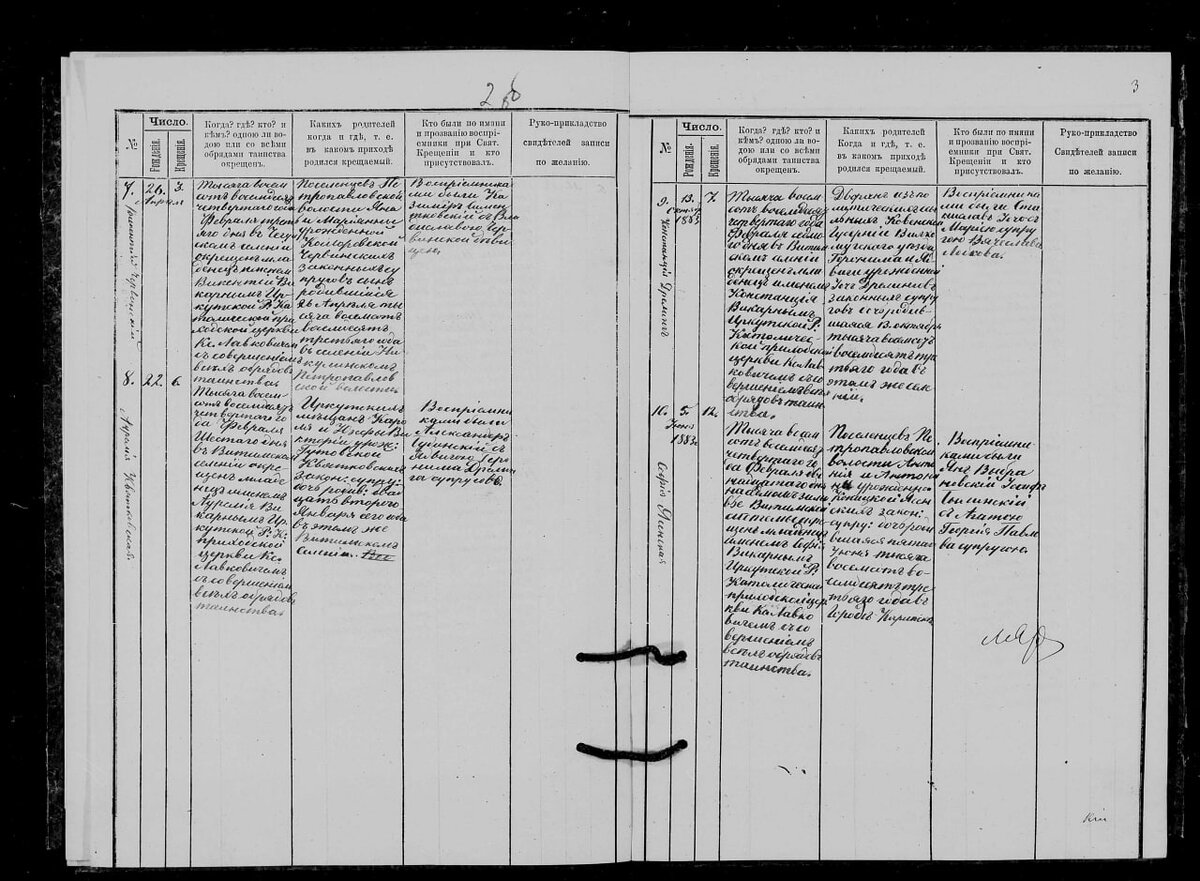 3
№
Число.
Рожденія.
Крещенія.
Когда? гдѣ? кто? и
кѣмъ? одною ли во-
дою или со всѣми
обрядами таинства
окрещенъ.
Какихъ родителей
когда и гдѣ, т. е.
въ какомъ приходѣ
родился крещаемый.
Кто были по имени
и прозванію воспрі-
емники при Свят.
Крещеніи и кто
присутствовалъ.
Руко-прикладство
свидѣтелей записи
по желанію.
7.
26.
Апрѣля
3.
Тысяча восем
сотъ восемьдесятъ
четвертаго года
Февраля треть
яго дня въ
скомъ селеніи
окрещенъ мла
денецъ именемъ
Викентій Ви
карнымъ Ир
кутской Р. Ка
толической при
ходской церкви
Кс. Лавковичемъ
съ совершеніемъ
всѣхъ обрядовъ
таинства
Поселенцевъ Пе
тропавловской
волости Яна
и Маріанны
урожденной
Комаровской
Червинскихъ
законныхъ су
пруговъ сынъ
родившійся
26 Апрѣля ты
сяча восемсотъ
восемьдесятъ
третьяго года
въ селеніи Ни
кулинскомъ
Петропавлов
ской волости
Воспріемника
ми были Ка
зиміръ
съ Вла
диславою Чер
винской
8.
22.
6.
Аурелія Квятковская.
Тысяча восем
сотъ восемьдесятъ
четвертаго го
да Февраля
Шестаго дня
въ Витимскомъ
селеніи окре
щенъ младе
нецъ именемъ
Аурелія Ви
карнымъ Ир
кутской Р. К.
приходской
церкви Кс.
Лавковичемъ
съ совершеніемъ
всѣхъ обрядовъ
таинства
Иркутскихъ
мѣщанъ Каро
ля и Юзефы Ви
кторіи урож:
Гутовской
Квятковскихъ
закон: супру:
дочь родив: два
дцать втораго
Января сего года
въ этомъ же
Витимскомъ
селеніи.
Воспріемни
ками были
Александръ
съ
Ядвигою Геро
нима Дрелин
га супругою
№
Число.
Рожденія.
Крещенія.
Когда? гдѣ? кто? и
кѣмъ? одною ли во-
дою или со всѣми
обрядами таинства
окрещенъ.
Какихъ родителей
Когда и гдѣ, т. е.
въ какомъ приходѣ
родился крещаемый.
Кто были по имени
и прозванію воспрі-
емники при Свят.
Крещеніи и кто
присутствовалъ.
Руко-прикладство
Свидѣтелей записи
по желанію.
9.
13.
Октябр
1883
7.
Констанція Дрелингъ
Тысяча восем
сотъ восемьдесятъ
четвертаго года
Февраля седьма
го дня въ Витим
скомъ селеніи
окрещенъ мла
денецъ именемъ
Констанція
Викарнымъ
Иркутской Р.
Католичес
кой приходской
церкви Кс Лав
ковичемъ съ со
вершеніемъ всѣхъ
обрядовъ таин
ства.
Дворянъ изъ по
литическихъ
Ковенской
Губерніи
уѣзда
Геронима и Яд
виги урожденной
Дрелинговъ
законныхъ супру
говъ дочь родив
шаяся 13 октября
тысяча восемсотъ
восемьдесятъ тре
тьяго года въ
этомъ же селе
ніи.
Воспріемника
ми были Ста
ниславъ
Маріею супру
гою Вячеслава
10.
5.
Іюня
1883
12.
Софія Ясинская
Тысяча восем
сотъ восемьдесятъ
четвертаго го
да Февраля две
надцатаго дня
Витимской
окре
щенъ младенецъ
именемъ Софія
Викарнымъ
Иркутской Р.
Католической
приходской цер
кви Кс Лавко
вичемъ съ со
вершеніемъ
всѣхъ обрядовъ
таинства.
Поселенцевъ Пе
тропавловской
волости Анто
на и Антони
ны урожденной
Ясин
скихъ закон:
супру: дочь роди
вшаяся пятаго
Іюня тысяча
восемсотъ во
семьдесятъ тре
тьяго года въ
городѣ Киренскѣ
Воспріемни
ками были
Янъ
новскій Іосифъ
съ Агатою
Георгія Павло
ва супругою